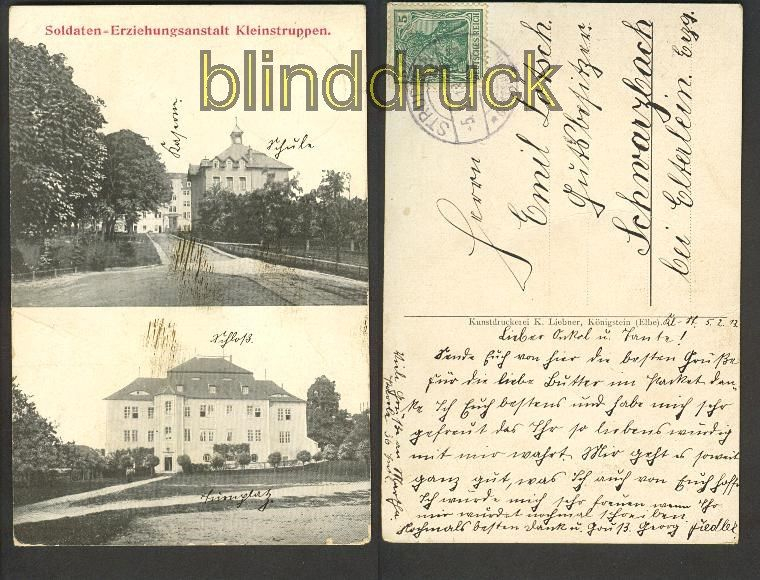 Soldaten-Erziehungsanstalt Kleinstruppen.
blinddruck
Kasern
Schule
Schloß.
Turnplatz
Herrn
Emil Lötsch.
Gutsbesitzer
Schwarzbach
bei Elterlein. Erzg.
5
DEUTSCHES REICH
STRU
Kunstdruckerei K. Liebner, Königstein (Elbe).
Kl-St. 5. 2. 12
Lieber Onkel u. Tante!
Sende Euch von hier die besten Grüße
für die liebe Butter im Packet dan-
ke Ich Euch bestens und habe mich sehr
gefreut das Ihr so liebenswürdig
mit mir wahrt. Mir geht es soweit
ganz gut, was Ich auch von Euch hoffe
Ich würde mich sehr freuen wenn Ihr
mir würdet nochmal schreiben
Nochmals besten Dank u. Gruß. Georg Fiedler
Viele Grüße an Martha